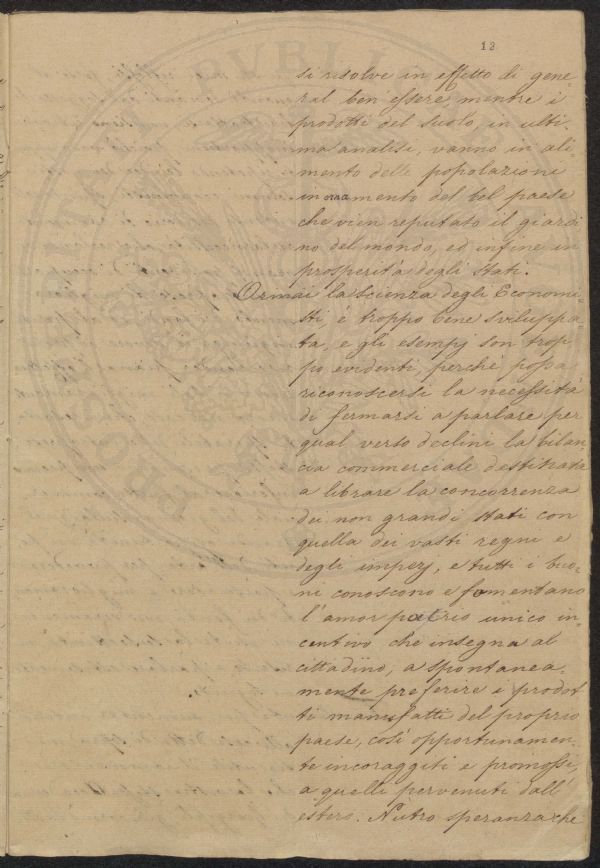 13
si risolve in effetto di gene-
ral ben essere, mentre i
prodotti del suolo, in ulti-
ma analisi, vanno in ali-
mento delle popolazioni
in ornamento del bel paese
che vien reputato il giardi-
no del mondo, ed infine in
prosperità degli Stati.
Ormai la scienza degli Economi-
sti, è troppo bene sviluppa-
ta, e gli esempj son trop-
po evidenti, perchè possa
riconoscersi la necessità
di fermarsi a parlare per
qual verso declini la bilan-
cia commerciale destinata
a librare la concorrenza
dei non grandi Stati con
quella dei vasti regni e
degli imperj, e tutti i buo-
ni conoscono e fomentano
l'amor patrio unico in-
centivo che insegna al
cittadino, a spontanea-
mente preferire i prodot-
ti manufatti del proprio
paese, così opportunamen-
te incoraggiti e promossi,
a quelli pervenuti dall'
estero. Nutro speranza che